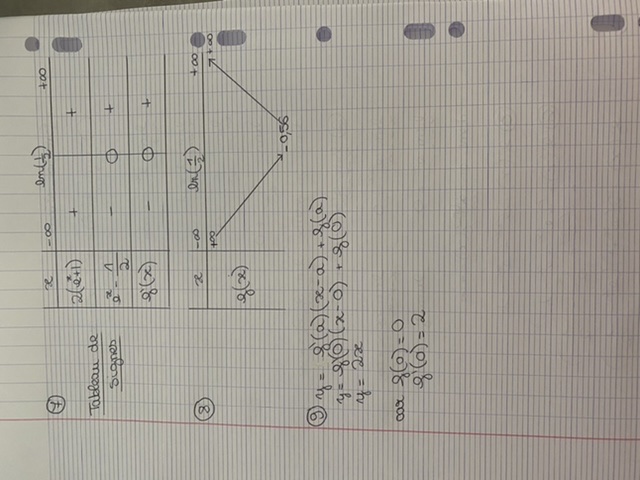 ⑦
Tableau de
signes
x -∞ ln(1/2) +∞
2(eˣ+1) + +
eˣ - 1/2 - 0 +
g'(x) - 0 +
⑧
x -∞ ln(1/2) +∞
g(x) +∞ -0,56 +∞
⑨ y = g'(a)(x-a) + g(a)
y = g'(0)(x-0) + g(0)
y = 2x
car g(0) = 0
g'(0) = 2